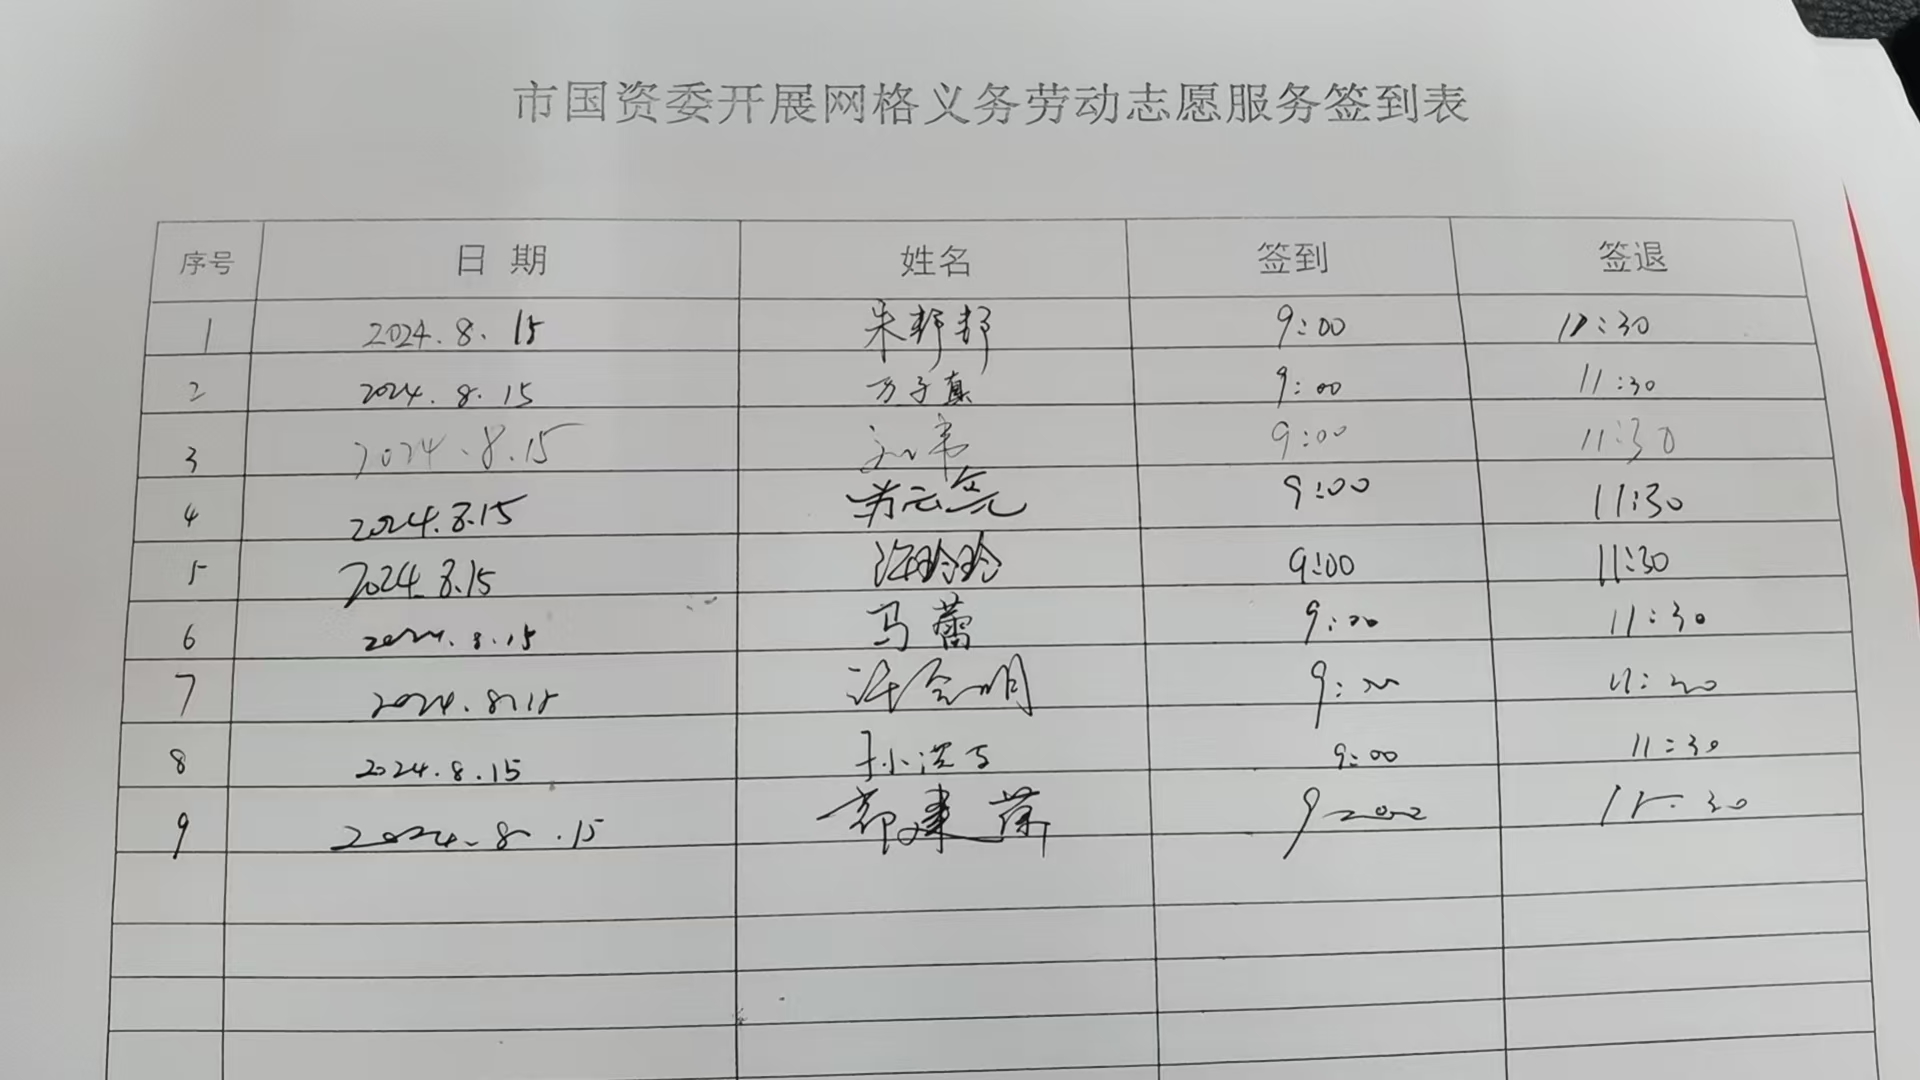 市国资委开展网格义务劳动志愿服务签到表
序号 日期 姓名 签到 签退
1 2024.8.15 朱邦邦 9:00 11:30
2 2024.8.15 万子真 9:00 11:30
3 2024.8.15 9:00 11:30
4 2024.8.15 9:00 11:30
5 2024.8.15 许玲玲 9:00 11:30
6 2024.8.15 马蕾 9:00 11:30
7 2024.8.15 许会明 9:00 11:30
8 2024.8.15 9:00 11:30
9 2024.8.15 9:00